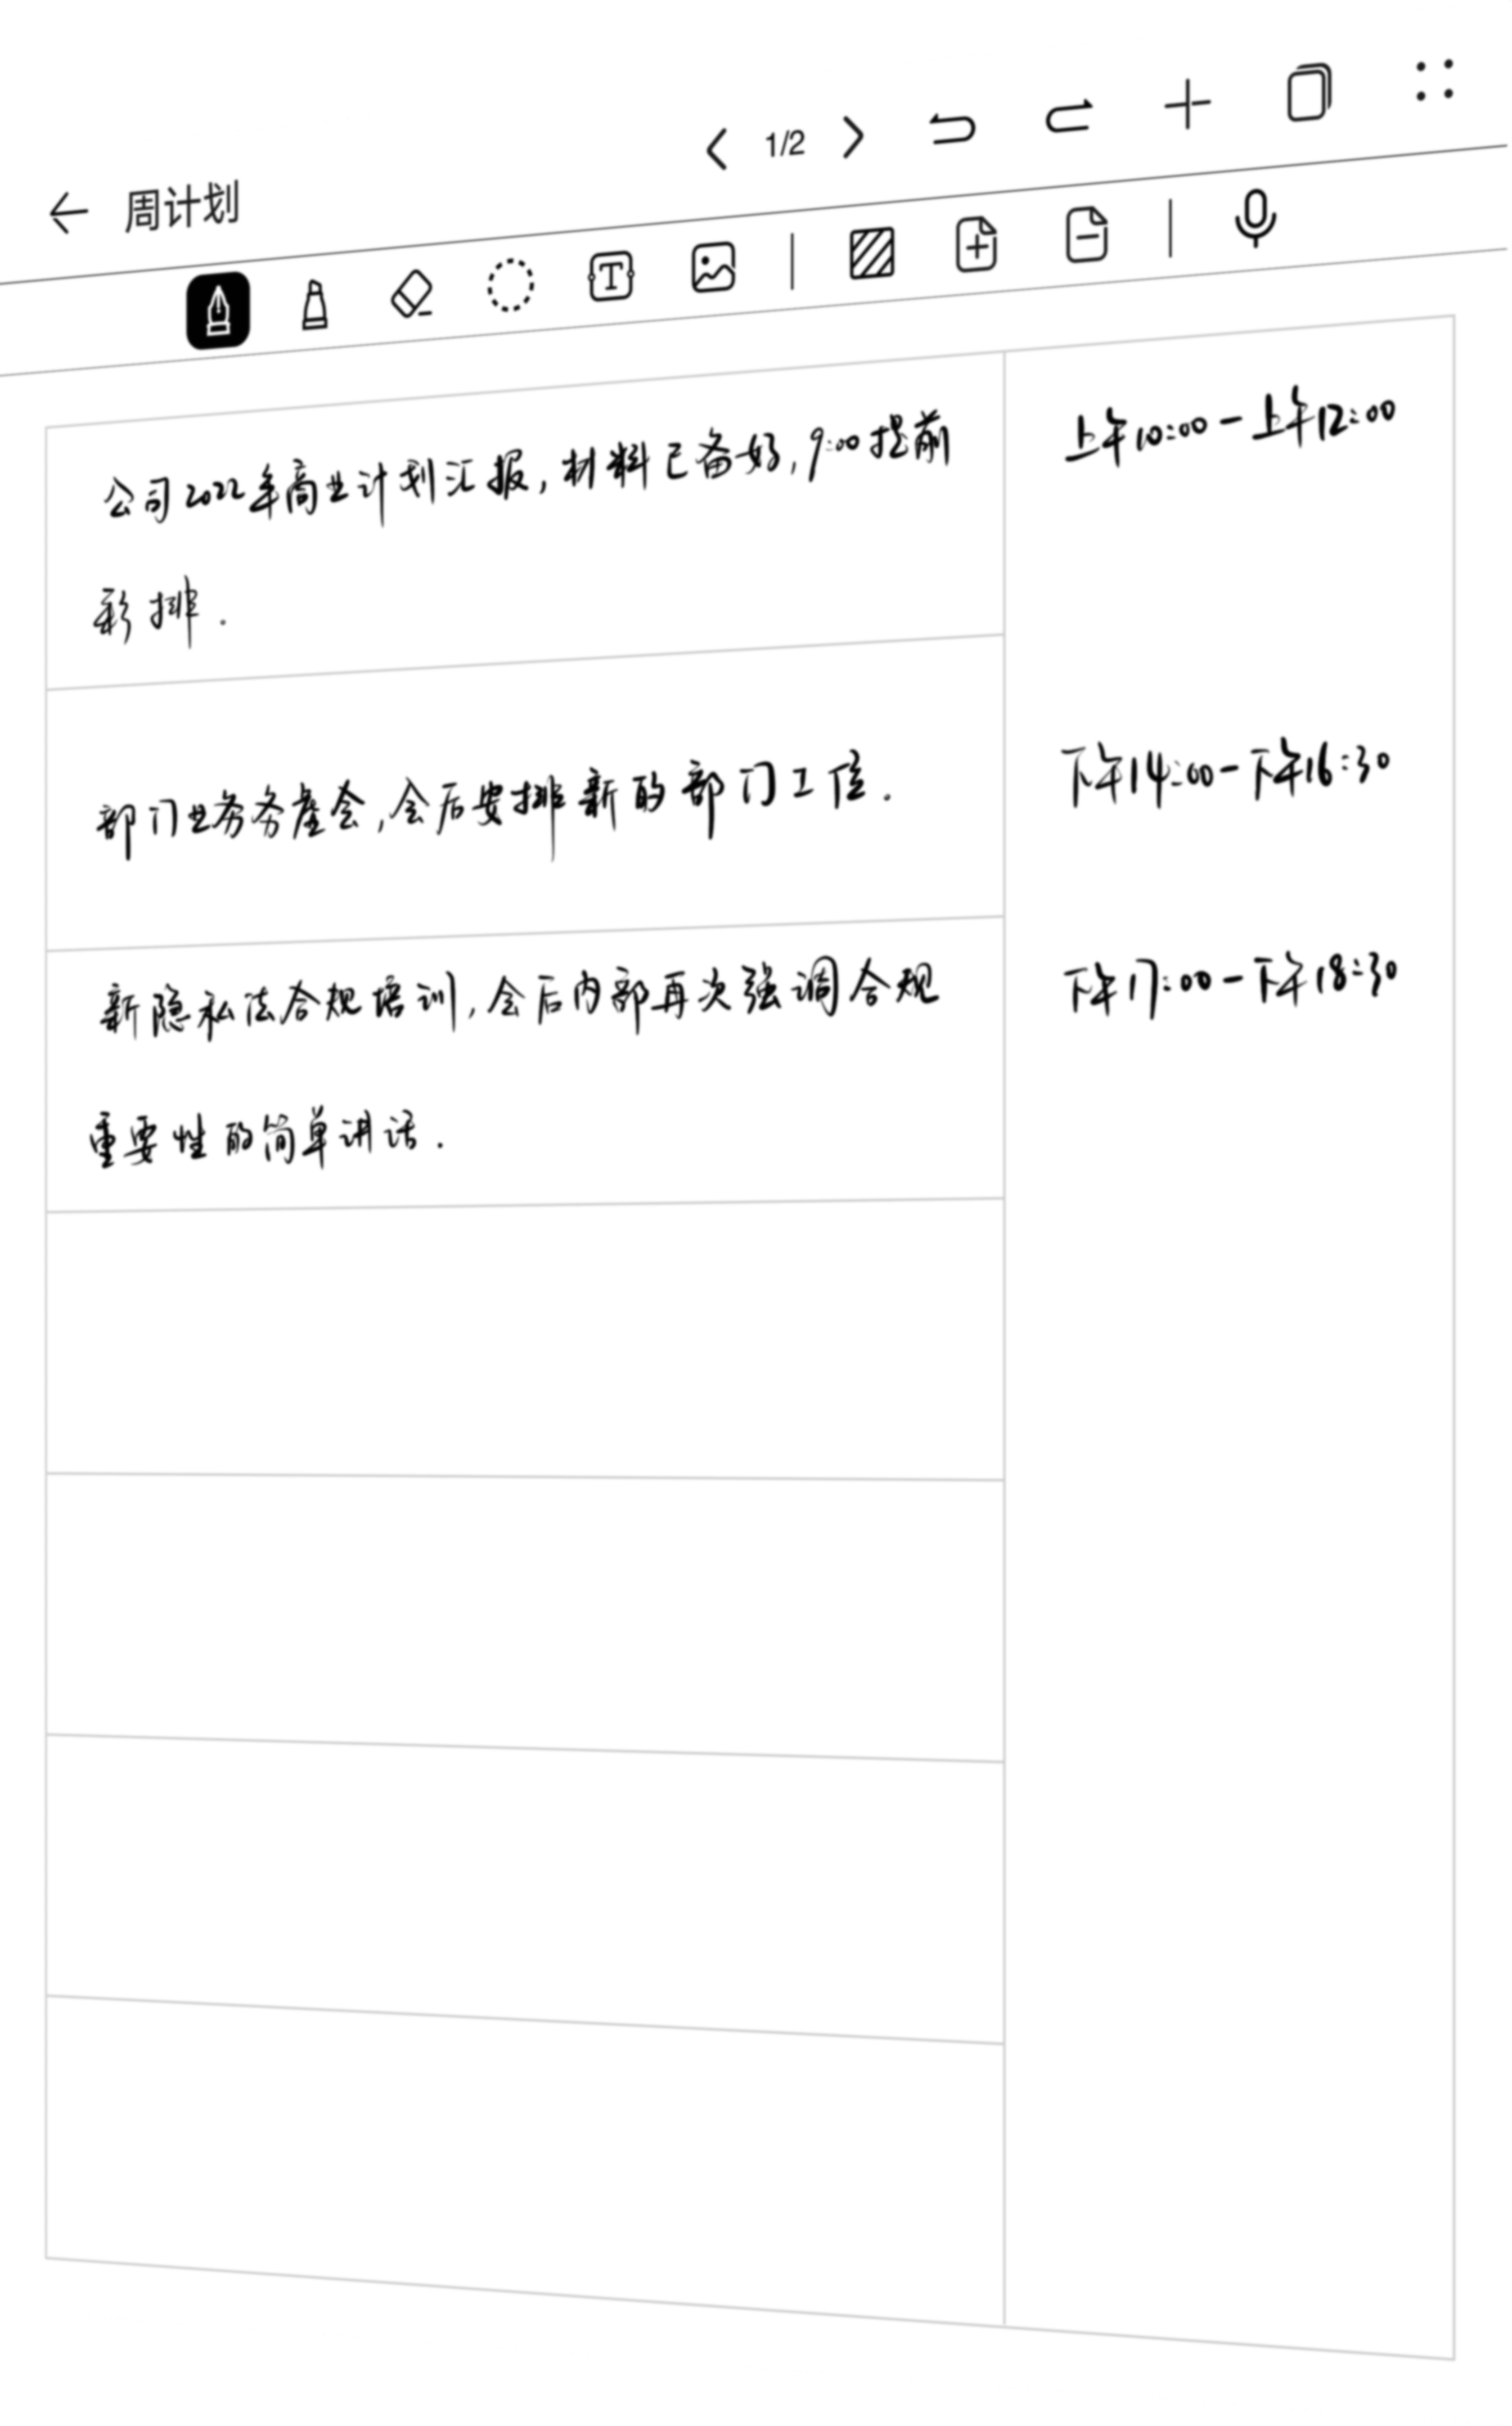 1/2
周计划
公司2022年商业计划汇报,材料已备好,9:00提前
彩排.
上午10:00-上午12:00
部门业务务座会,会后要排新的部门工位.
下午14:00-下午16:30
新隐私法合规培训,会后内部再次强调合规
重要性的简单讲话.
下午17:00-下午18:30